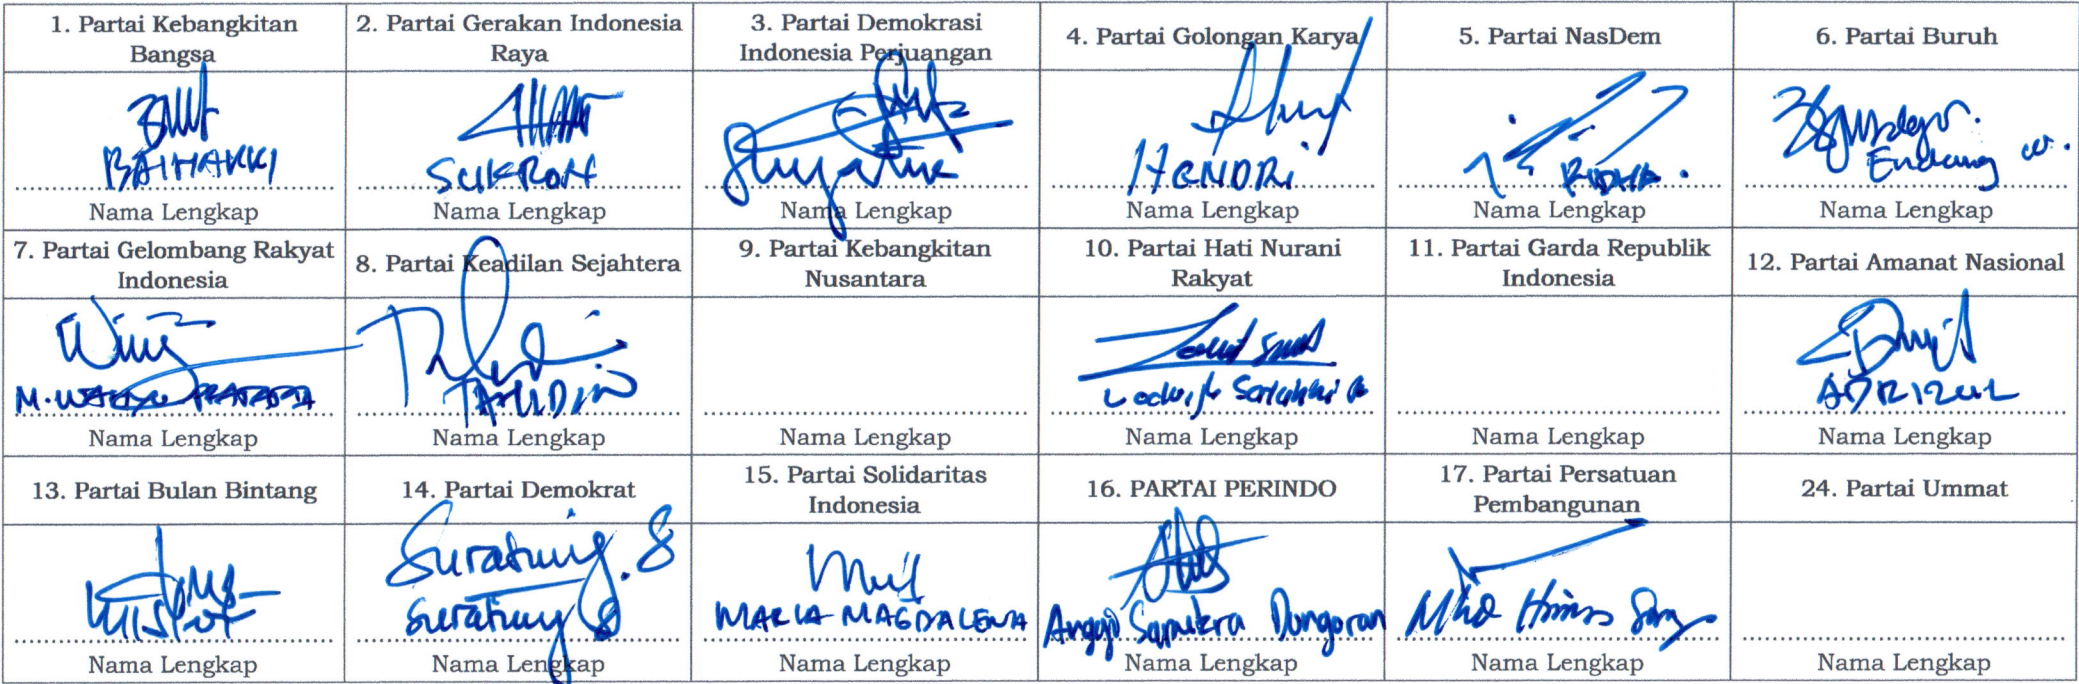 1. Partai Kebangkitan
Bangsa
2. Partai Gerakan Indonesia
Raya
3. Partai Demokrasi
Indonesia Perjuangan
4. Partai Golongan Karya
5. Partai NasDem
6. Partai Buruh
BAIHAKKI
SUKRON
HENDRI
RIDHA.
Endang w.
Nama Lengkap
Nama Lengkap
Nama Lengkap
Nama Lengkap
Nama Lengkap
Nama Lengkap
7. Partai Gelombang Rakyat
Indonesia
8. Partai Keadilan Sejahtera
9. Partai Kebangkitan
Nusantara
10. Partai Hati Nurani
Rakyat
11. Partai Garda Republik
Indonesia
12. Partai Amanat Nasional
M. WAHYU PRATAMA
Nama Lengkap
Nama Lengkap
Nama Lengkap
Nama Lengkap
Nama Lengkap
Nama Lengkap
13. Partai Bulan Bintang
14. Partai Demokrat
15. Partai Solidaritas
Indonesia
16. PARTAI PERINDO
17. Partai Persatuan
Pembangunan
24. Partai Ummat
MARIA MAGDALENA
Anggi Saputra Dongoran
Nama Lengkap
Nama Lengkap
Nama Lengkap
Nama Lengkap
Nama Lengkap
Nama Lengkap